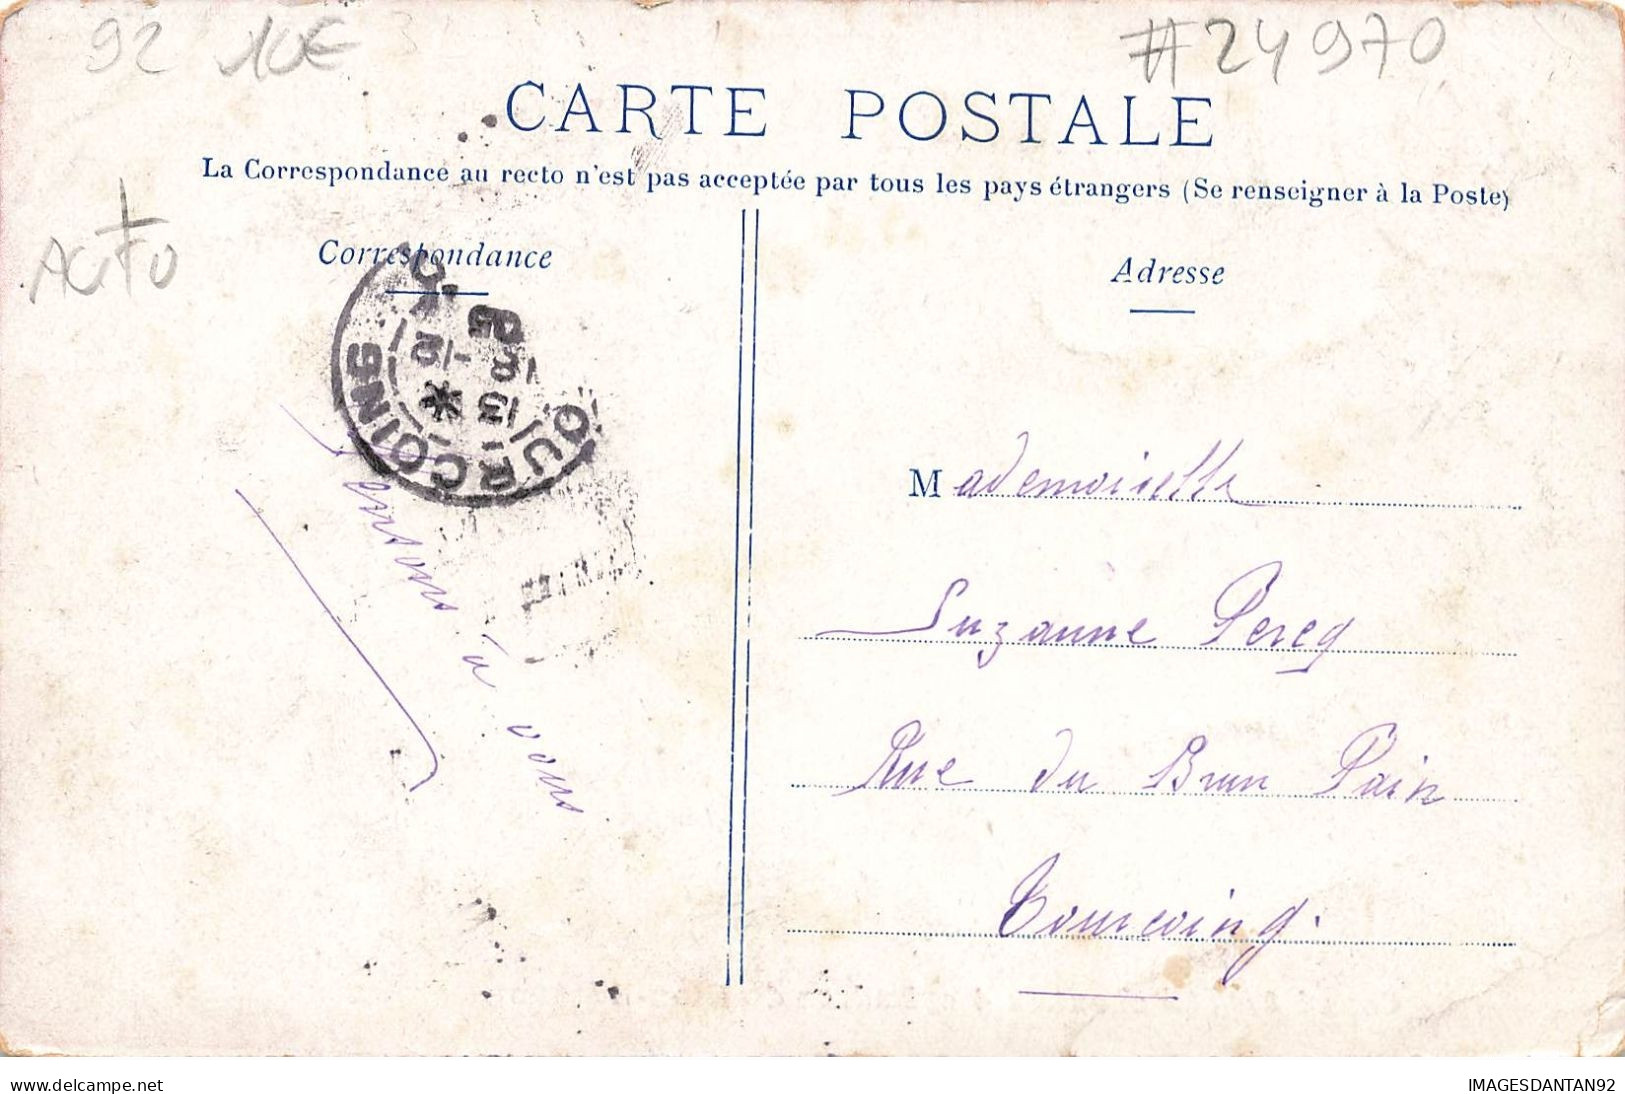 92 10€
#24970
CARTE POSTALE
La Correspondance au recto n'est pas acceptée par tous les pays étrangers (Se renseigner à la Poste)
AUTO
Correspondance
Adresse
OURCOING
13
à vous
Mademoiselle
Suzanne Pereq
Rue du Brun Pain
Tourcoing.
delcampe.net
IMAGESDANTAN92